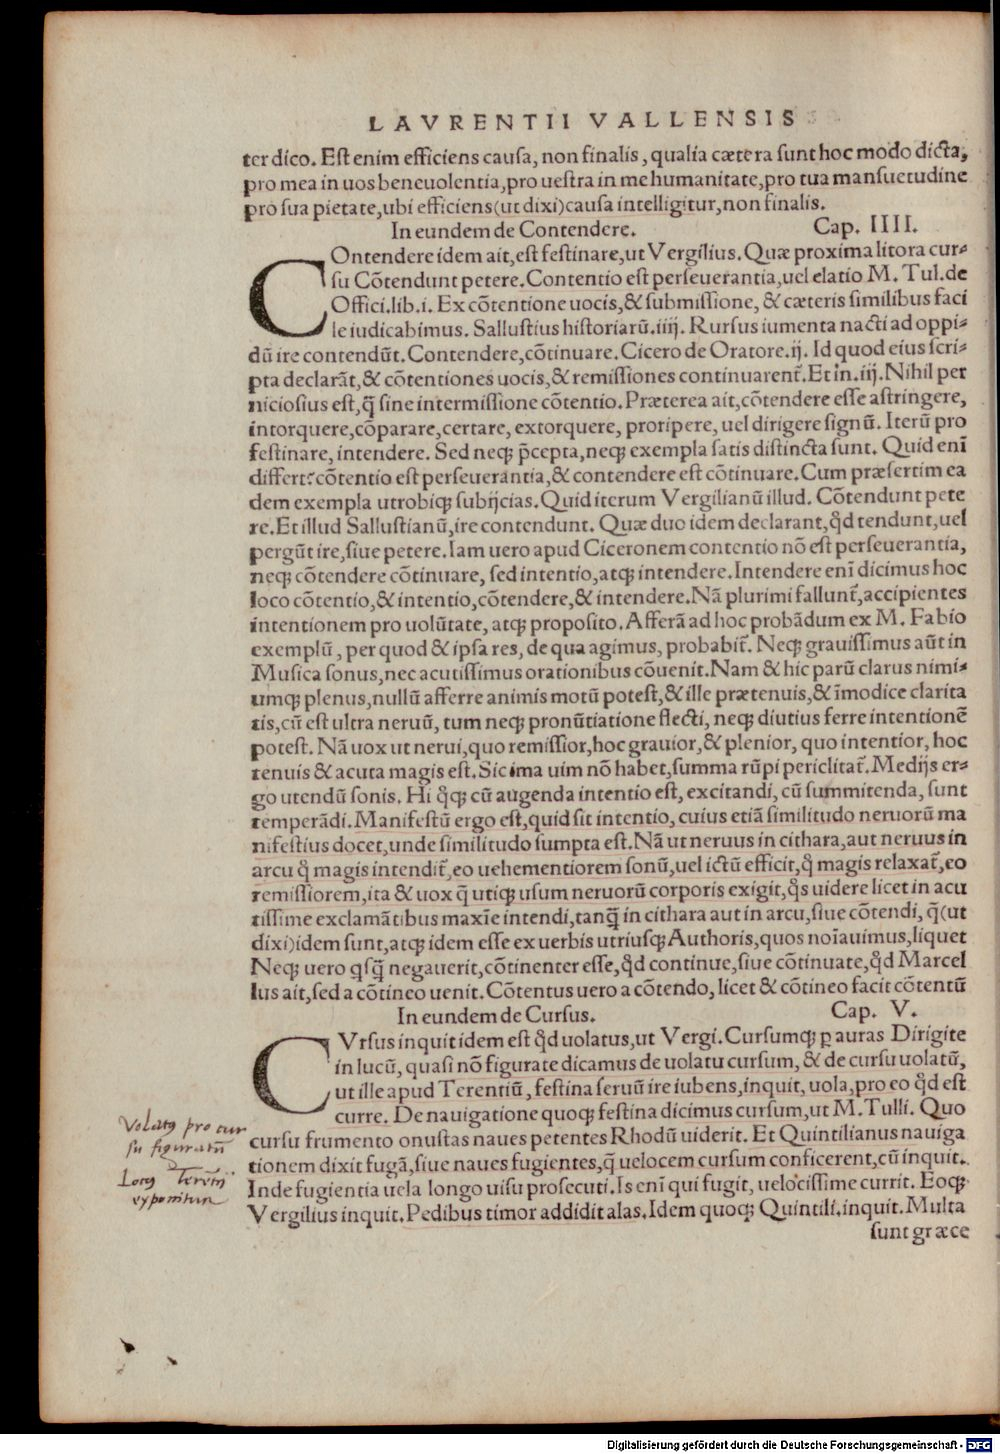 LAVRENTII VALLENSIS
ter dico. Est enim efficiens causa, non finalis, qualia cætera sunt hoc modo dicta,
pro mea in uos beneuolentia, pro uestra in me humanitate, pro tua mansuetudine
pro sua pietate, ubi efficiens(ut dixi)causa intelligitur, non finalis.
In eundem de Contendere. Cap. IIII.
COntendere idem ait, est festinare, ut Vergilius. Quæ proxima litora cur-
su Cõtendunt petere. Contentio est perseuerantia, uel elatio M. Tul. de
Offici. lib. i. Ex cõtentione uocis, & submissione, & cæteris similibus faci
le iudicabimus. Sallustius historiarũ. iiij. Rursus iumenta nacti ad oppi-
dũ ire contendũt. Contendere, cõtinuare. Cicero de Oratore. ij. Id quod eius scri-
pta declarãt, & cõtentiones uocis, & remissiones continuarent̃. Et in. iij. Nihil per
niciosius est, q̃ sine intermissione cõtentio. Præterea ait, cõtendere esse astringere,
intorquere, cõparare, certare, extorquere, proripere, uel dirigere signũ. Iterũ pro
festinare, intendere. Sed neqꝫ p̃cepta, neqꝫ exempla satis distincta sunt. Quid enĩ
differt? cõtentio est perseuerantia, & contendere est cõtinuare. Cum præsertim ea
dem exempla utrobiqꝫ subijcias. Quid iterum Vergilianũ illud. Cõtendunt pete
re. Et illud Sallustianũ, ire contendunt. Quæ duo idem declarant, q̊d tendunt, uel
pergũt ire, siue petere. Iam uero apud Ciceronem contentio nõ est perseuerantia,
neqꝫ cõtendere cõtinuare, sed intentio, atqꝫ intendere. Intendere enĩ dicimus hoc
loco cõtentio, & intentio, cõtendere, & intendere. Nã plurimi fallunt̃, accipientes
intentionem pro uolũtate, atqꝫ proposito. Afferã ad hoc probãdum ex M. Fabio
exemplũ, per quod & ipsa res, de qua agimus, probabit̃. Neqꝫ grauissimus aũt in
Musica sonus, nec acutissimus orationibus cõuenit. Nam & hic parũ clarus nimi-
umqꝫ plenus, nullũ afferre animis motũ potest, & ille prætenuis, & ĩmodice clarita
tis, cũ est ultra neruũ, tum neqꝫ pronũtiatione flecti, neqꝫ diutius ferre intentionẽ
potest. Nã uox ut nerui, quo remissior, hoc grauior, & plenior, quo intentior, hoc
tenuis & acuta magis est. Sic ima uim nõ habet, summa rũpi periclitat̃. Medijs er-
go utendũ sonis. Hi q̊qꝫ cũ augenda intentio est, excitandi, cũ summitenda, sunt
temperãdi. Manifestũ ergo est, quid sit intentio, cuius etiã similitudo neruorũ ma
nifestius docet, unde similitudo sumpta est. Nã ut neruus in cithara, aut neruus in
arcu q̊ magis intendit̃, eo uehementiorem sonũ, uel ictũ efficit, q̊ magis relaxat̃, eo
remissiorem, ita & uox q̃ utiqꝫ usum neruorũ corporis exigit, q̊s uidere licet in acu
tissime exclamãtibus maxĩe intendi, tanq̃ in cithara aut in arcu, siue cõtendi, q̃(ut
dixi)idem sunt, atqꝫ idem esse ex uerbis utriusqꝫ Authoris, quos noĩauimus, liquet
Neqꝫ uero qsq̃ negauerit, cõtinenter esse, q̊d continue, siue cõtinuate, q̊d Marcel
lus ait, sed a cõtineo uenit. Cõtentus uero a cõtendo, licet & cõtineo facit cõtentũ
In eundem de Cursus. Cap. V.
CVrsus inquit idem est q̊d uolatus, ut Vergi. Cursumqꝫ ꝑ auras Dirigite
in lucũ, quasi nõ figurate dicamus de uolatu cursum, & de cursu uolatũ,
ut ille apud Terentiũ, festina seruũ ire iubens, inquit, uola, pro eo q̊d est
curre. De nauigatione quoqꝫ festina dicimus cursum, ut M. Tulli. Quo
cursu frumento onustas naues petentes Rhodũ uiderit. Et Quintilianus nauiga
tionem dixit fugã, siue naues fugientes, q̃ uelocem cursum conficerent, cũ inquit.
Inde fugientia uela longo uisu prosecuti. Is enĩ qui fugit, uelocissime currit. Eoqꝫ
Vergilius inquit. Pedibus timor addidit alas. Idem quoqꝫ Quintili. inquit. Multa
sunt græce
Volatꝰ pro cur
su figuratũ
Locꝰ Terẽtij
exponitur
Digitalisierung gefördert durch die Deutsche Forschungsgemeinschaft - DFG